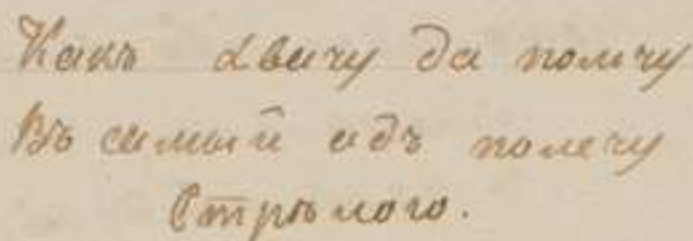 Какъ двичу да помчу
Въ самый адъ полечу
Стрѣлого.